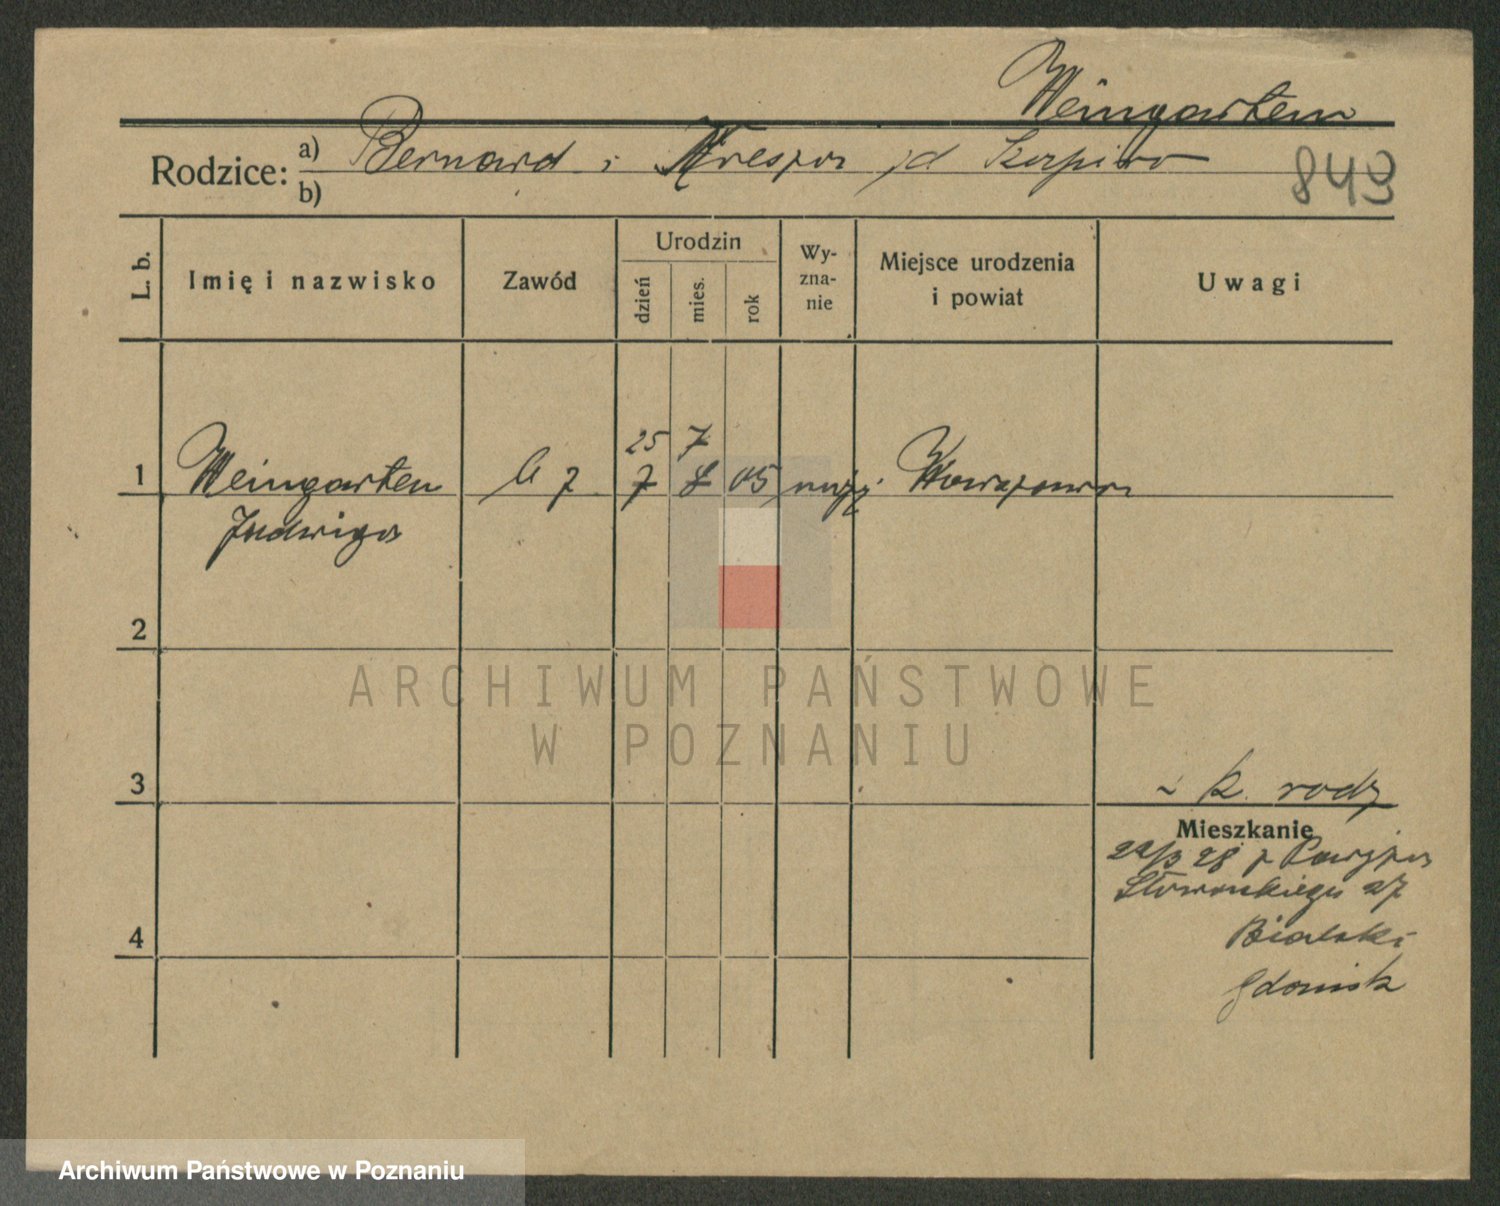 Weingarten
Rodzice: a) Bernard i d Szapiro
b)
849
L. b.
Imię i nazwisko
Zawód
Urodzin
dzień
mies.
rok
Wy-
zna-
nie
Miejsce urodzenia
i powiat
Uwagi
25 7
1 Weingarten 7 8 05 mojż Warszawa
Jadwiga
2
3
k. rodz
Mieszkanie
22/3 28 z Paryża
Słowackiego 27
Bialski
Gdańsk
4
ARCHIWUM PAŃSTWOWE
W POZNANIU
Archiwum Państwowe w Poznaniu